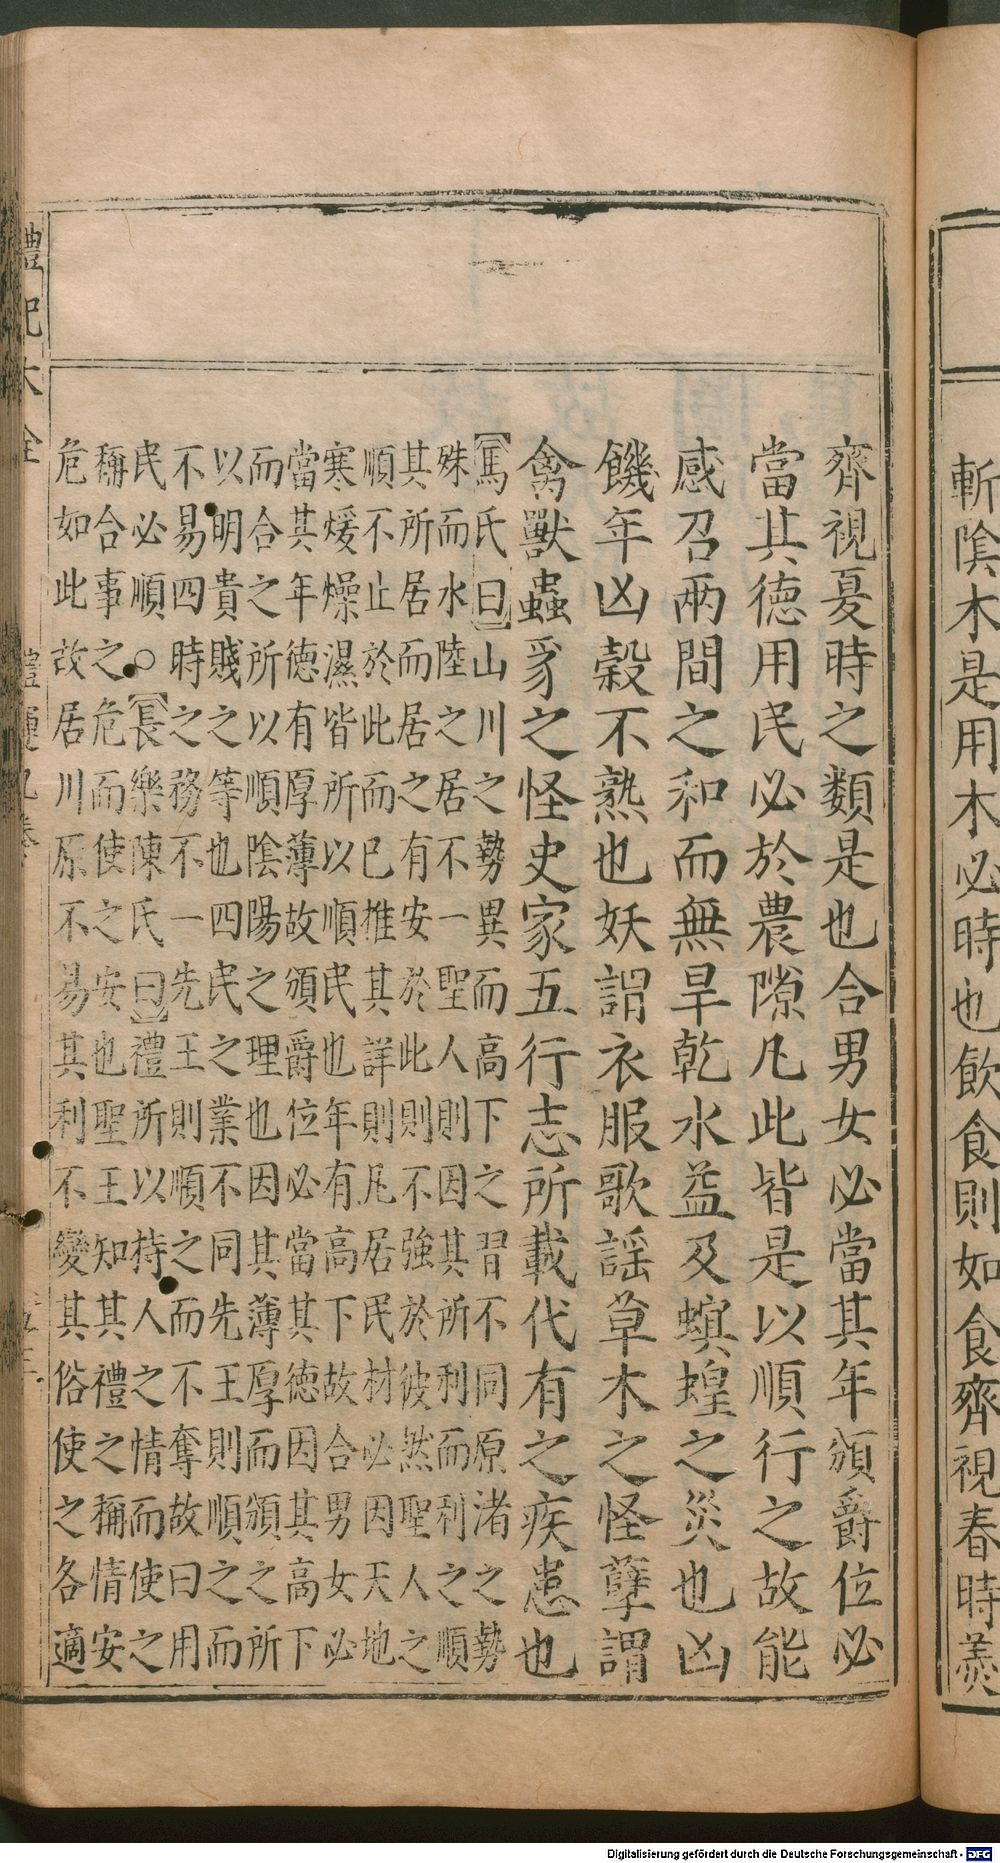 斬隂木是用木必時也飲食則如食齊視春時羮
齊視夏時之類是也合男女必當其年頒爵位必
當其德用民必於農隙凡此皆是以順行之故能
感召兩間之和而無旱乾水益及螟蝗之災也凶
饑年凶榖不熟也妖謂衣服歌謡草木之怪孽謂
禽獸蟲豸之怪史家五行志所載代有之疾患也
馬氏曰山川之勢異而高下之習不同原渚之勢
殊而水陸之居不一聖人則因其所利而利之順
其所居而居之有安於此則不強於彼然聖人之
順不止於此而已推其詳則凡居民材必因天地
寒煖燥濕皆所以順民也年有高下故合男女必
當其年德有厚薄故頒爵位必當其德因其高下
而合之所以順隂陽之理也因其薄厚而頒之所
以明貴賤之等也四民之業不同先王則順之而
不易四時之務不一先王則順之而不奪故曰用
民必順○長樂陳氏曰禮所以持人之情而使之
稱合事之危而使之安也聖王知其禮之稱情安
危如此故居川原不易其利不變其俗使之各適
禮記大全
禮運九卷
Digitalisierung gefördert durch die Deutsche Forschungsgemeinschaft - DFG